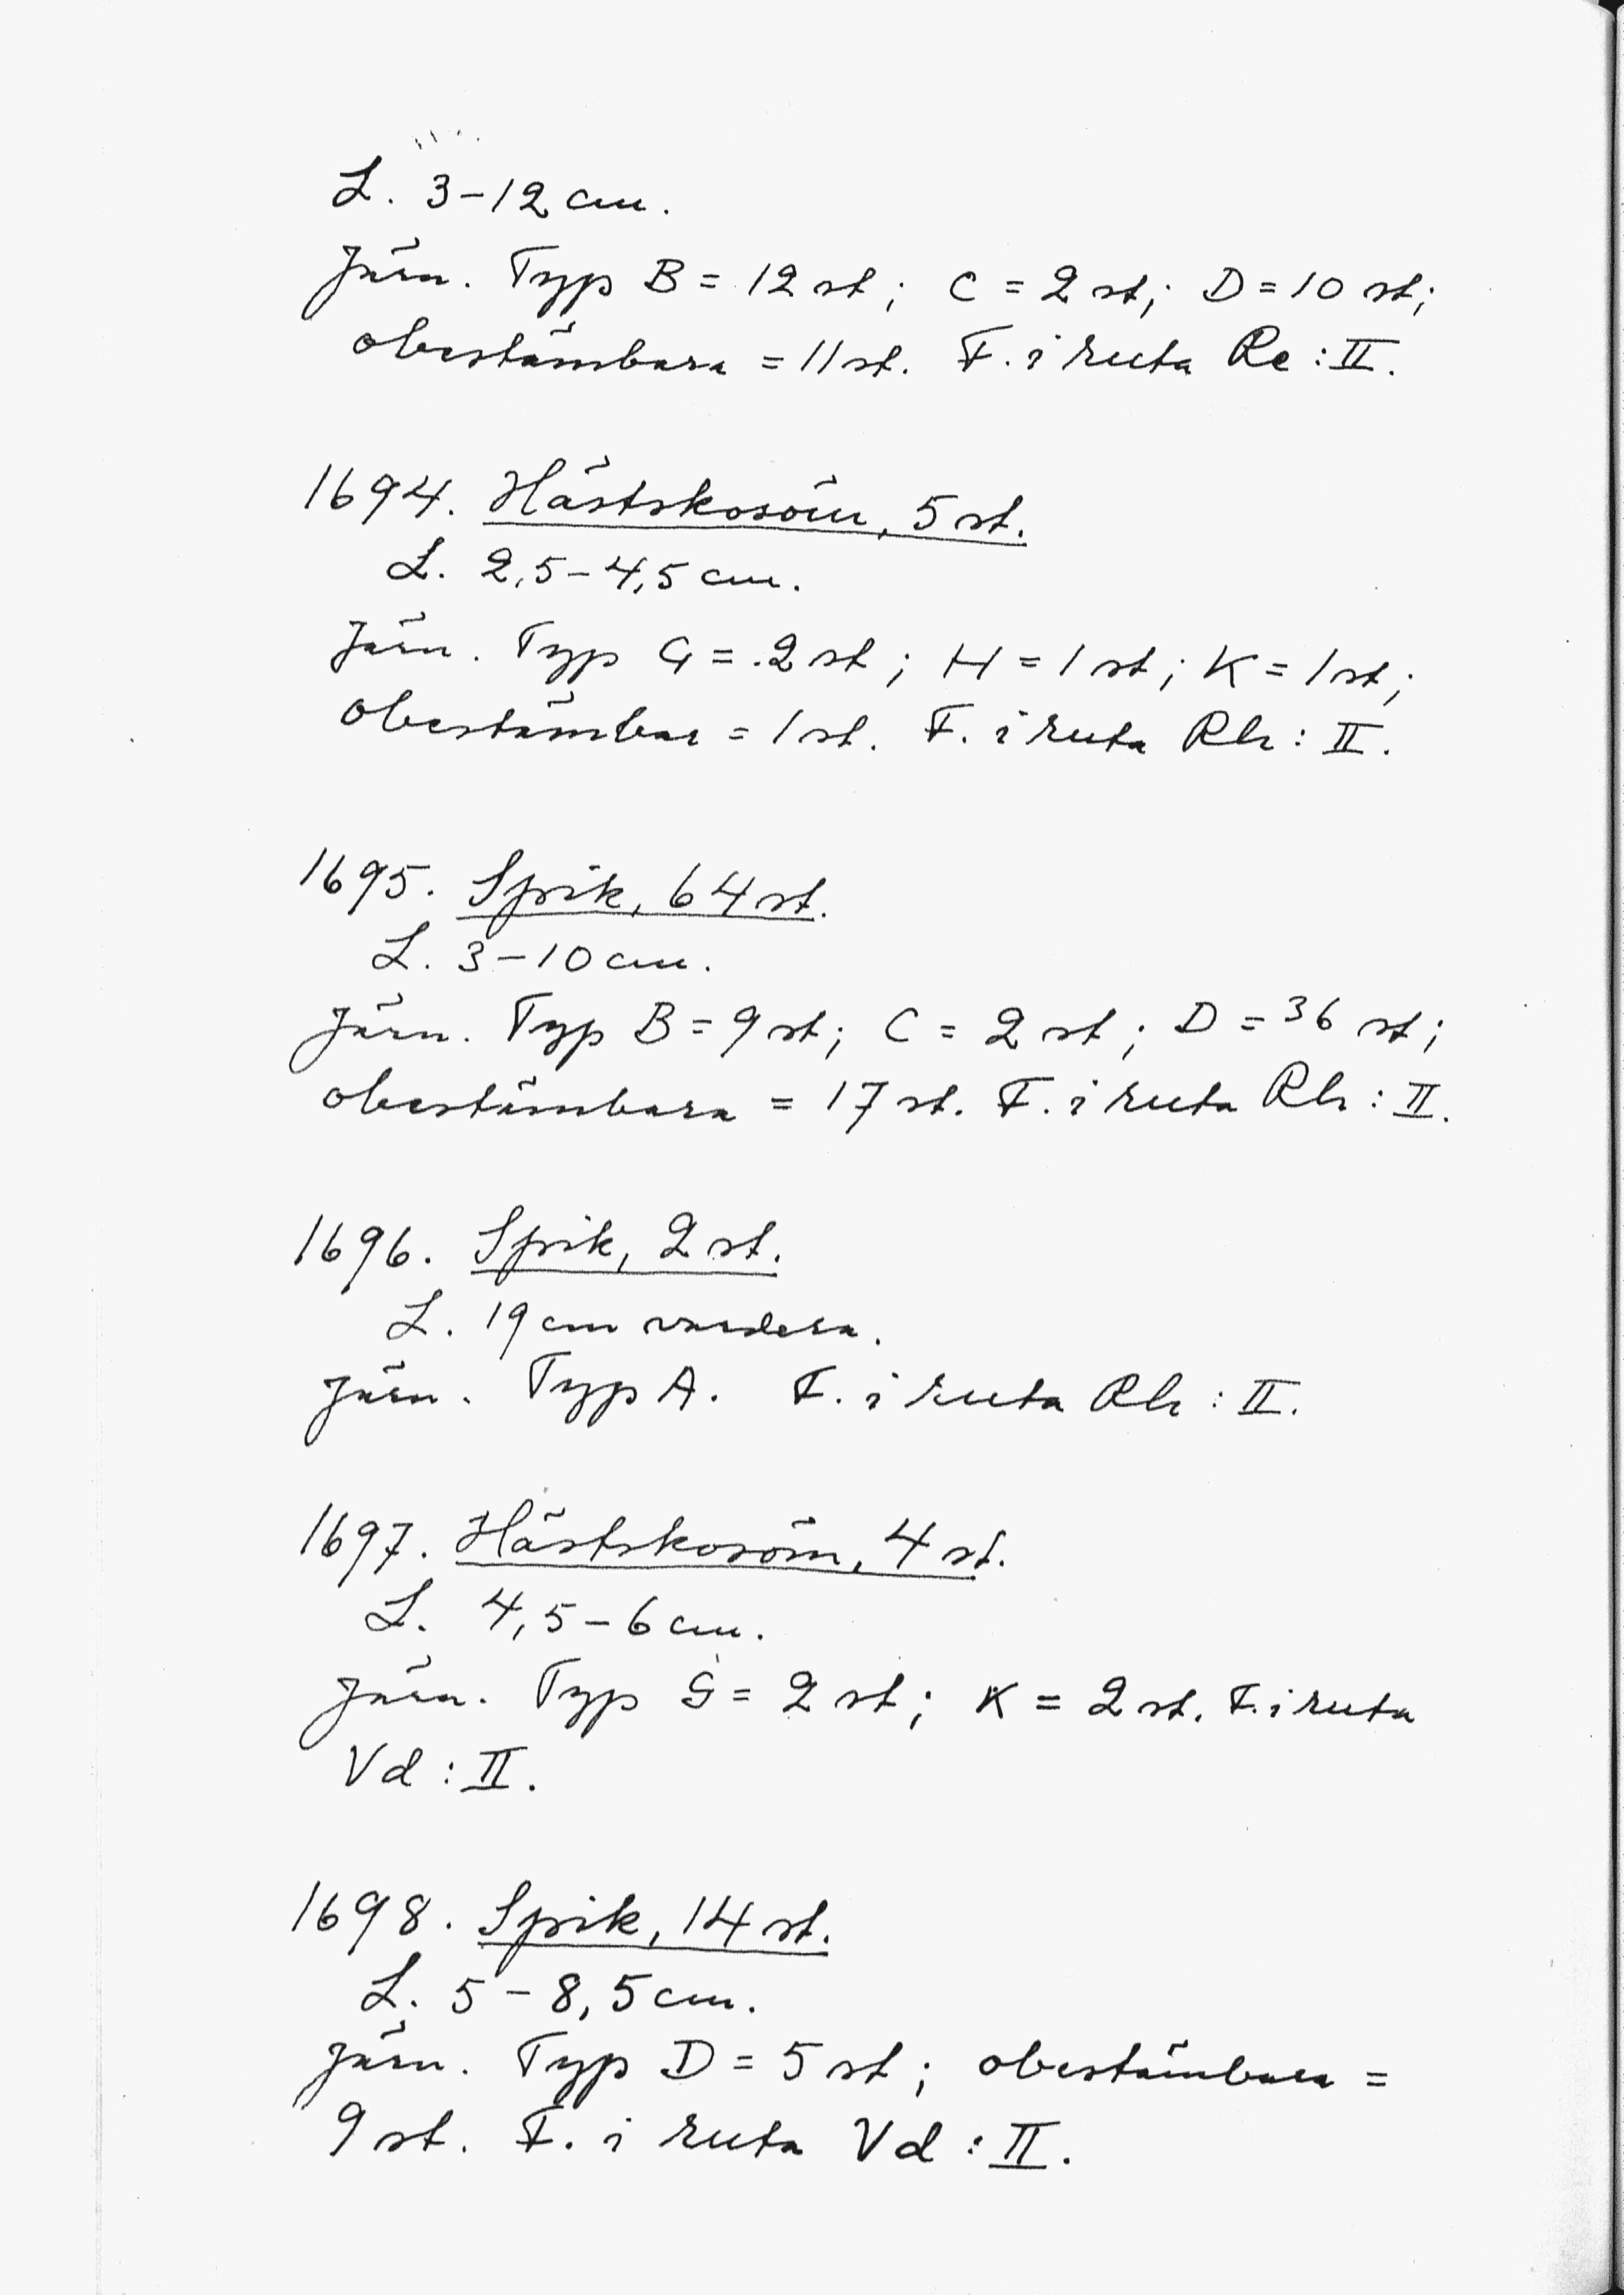 L. 3-12 cm.
Järn. Typ B = 12 st; C = 2 st; D = 10 st;
obestämbara = 11 st. F. i ruta Re: II.
1694. Hästskosöm, 5 st.
L. 2,5-4,5 cm.
Järn. Typ G = 2 st; H = 1 st; K = 1 st;
obestämbar = 1 st. F. i ruta Rh: II.
1695. Spik, 64 st.
L. 3-10 cm.
Järn. Typ B = 9 st; C = 2 st; D = 36 st;
obestämbara = 17 st. F. i ruta Rh: II.
1696. Spik, 2 st.
L. 19 cm vardera.
Järn. Typ A. F. i ruta Rh: II.
1697. Hästskosöm, 4 st.
L. 4,5-6 cm.
Järn. Typ G = 2 st; K = 2 st. F. i ruta
Vd: II.
1698. Spik, 14 st.
L. 5-8,5 cm.
Järn. Typ D = 5 st; obestämbara =
9 st. F. i ruta Vd: II.